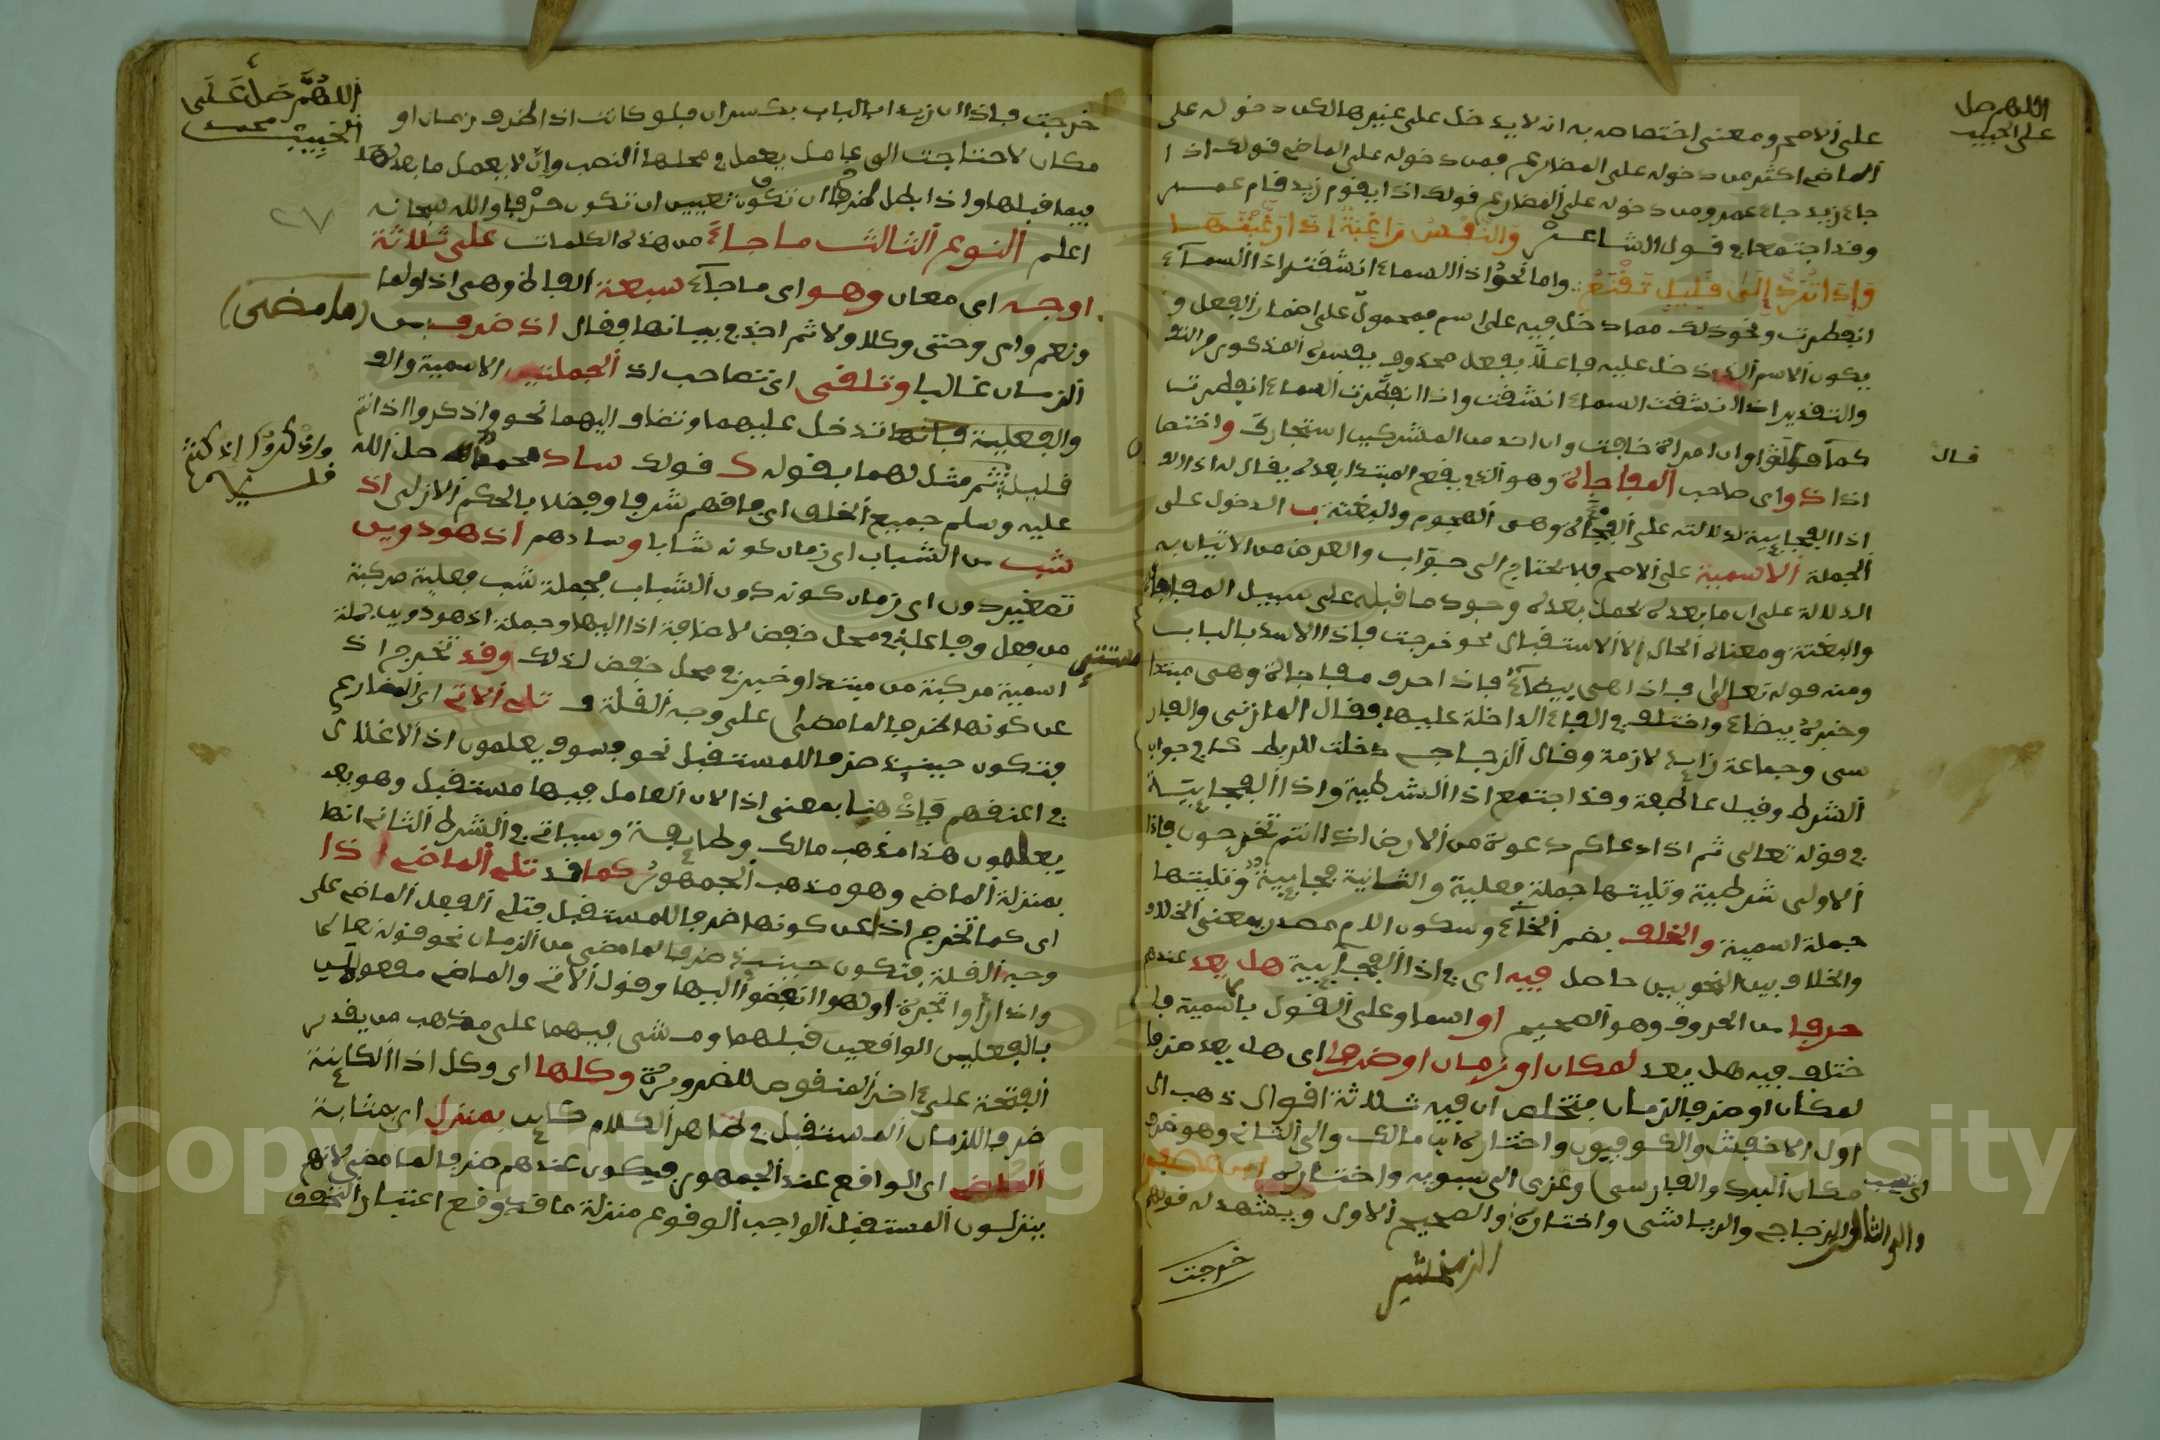 اللهم صل
على الحبيب
على الاصح ومعنى اختصاصه به انه لا يدخل على غيرها لكن دخوله على
الماضي اكثر من دخوله على المضارع فمن دخوله على الماضي قولك اذا
جاء زيد جاء عمرو ومن دخوله على المضارع قولك اذا يقوم زيد قام عمر
وقد اجتمعا في قول الشاعر والنفس راغبة اذا رغبتها
واذا ترد الى قليل تقنع واما نحو اذا السماء انشقت اذا السماء
انفطرت ونحو ذلك مما دخل فيه على اسم فمحمول على اضمار الفعل و
يكون الاسم الذي دخل عليه فاعلا بفعل محذوف يفسره المذكور
والتقدير اذا انشقت السماء انشقت واذا انفطرت السماء انفطرت
كما وان امراة خافت وان احد من المشركين استجارك واختصا
قال
اذا ذو اي صاحب المفاجاة وهو الذي يقع المبتدا بعده يقال له اذا
اذا الفجايية لدلالته على الفجأة وهى الهجوم والبغتة ب الدخول على
الجملة الاسمية على الاصح فلا يحتاج الى جواب والغرض من الاتيان به
الدلالة على ان ما بعده يحصل بعده وجود ما قبله على سبيل المفاجاة
والبغتة ومعناه الحال لا الاستقبال نحو خرجت فاذا الاسد بالباب
ومنه قوله تعالى فاذا هى بيضاء فاذا حرف مفاجاة وهى مبتدا
وخبره بيضاء واختلف في الفاء الداخلة عليها فقال المازنى والفار
سى وجماعة زايدة لازمة وقال الزجاج دخلت للربط كما في جواب
الشرط وقيل عاطفة وقد اجتمع اذا الشرطية واذا الفجايية
في قوله تعالى ثم اذا دعاكم دعوة من الارض اذا انتم تخرجون فاذا
الاولى شرطية وتليتها جملة فعلية والثانية فجايية وتليتها
جملة اسمية والخلف بضم الخاء وسكون اللام مصدر بمعنى الخلاف
والخلاف بين النحويين حاصل فيه اى في اذا الفجايية هل يعد عندهم
حرفا من الحروف وهو الصحيح او اسما وعلى القول باسمية فا
ختلف فيه هل يعد لمكان او زمان او ضرفا اى هل يعد ضرفا
لمكان او ضرف الزمان فتخلص ان فيه ثلاثة اقوال ذهب الى
اول الاخفش والكوفيون واختاره ابن مالك والى الثاني وهو ضرف
مكان المبرد والفارسى وعزى الى سبويه واختاره ابن عصفور
والى الثالث الزجاج والرياشى واختاره والصحيح الاول ويشهد له قولهم
الزمخشير
خرجت
اللهم صل على
الحبيب محمد
خرجت فاذا ان زيدا بالباب بكسر ان فلو كانت اذا ظرف زمان او
مكان لاحتاجت الى عامل يعمل في محلها النصب وان لا يعمل ما بعدها
فيما قبلها واذا بطل ان تكون تعيين ان تكون حرفا والله سبحانه
٢٧
اعلم النوع الثالث ما جاء من هذه الكلمات على ثلاثة
اوجه اى معان وهو اى ما جاء سبعة الفاظ وهى اذ ولما
ونعم واى وحتى وكلا ولا ثم اخذ في بيانها فقال اذ ضرف من
(ما مضى)
الزمان غالبا وتلفى اى تصاحب اذ الجملتين الاسمية والف
والفعلية فانها تدخل عليهما وتضاف اليهما نحو واذكروا اذ انتم
واذكروا اذ كنتم
قليلا
قليل ثم مثل لهما بقوله ك قولك ساد محمد صل الله
عليه وسلم جميع الخلق اى فاقهم شرفا وفضلا بالحكم الازلى اذ
شب من الشباب اى زمان كونه شابا وسادهم اذ هو دوين
تصغير دون اى زمان كونه دون الشباب فجملة شب فعلية مركبة
من فعل وفاعلة في محل خفض لاضافة اذا اليها وجملة اذ هو دوين جملة
اسمية مركبة من مبتدا وخبر في محل خفض لذلك وقد تخرج اذ
عن كونها لظرف لما مضى على وجه القلة و تلي الاتي اى المضارع
فتكون حينيذ ضرفا للمستقبل نحو فسوف يعلمون اذ الاغلال
في اعنقهم فاذ هنا بمعنى اذا لان العامل فيها مستقبل وهو يعد
يعلمون هذا مذهب مالك وطايفة وسياتي في الشرط الثاني انها
بمنزلة الماضي وهو مذهب الجمهور كما قد تلي الماضي اذا
اى كما تخرج اذا عن كونها ضرفا للمستقبل فتلي الفعل الماضي على
وجه القلة فتكون حينيذ ضرفا لما مضى من الزمان نحو قوله تعالى
واذا راوا تجرة او لهوا انفضوا اليها وقول الاتي والماضي مفعولان
بالفعلين الواقعين قبلهما ومشى فيهما على مذهب من يقدر
الفتحة على اخر المنقوص للضرورة وكلها اى وكل اذا الكاينة
ضرفا للزمان المستقبل في ظاهر الكلام كاين بمنزل اى بمثابة
الماضي اى الواقع عند الجمهور فيكون عندهم ضرفا لما مضى لانهم
ينزلون المستقبل الواجب الوقوع منزلة ما قد وقع اعتبار التحقق
Copyright © King Saud University